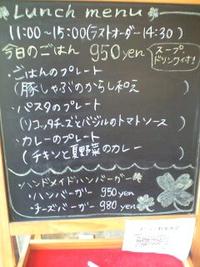 Lunch menu
11:00～15:00(ラストオーダー14:30)
今日のごはん 950yen
スープ
ドリンク付!
・ごはんのプレート
(豚しゃぶのからし和え)
・パスタのプレート
(リコッタチーズとバジルのトマトソース)
・カレーのプレート
(チキンと夏野菜のカレー)
ハンドメイドハンバーガー
・ハンバーガー 950yen
・チーズバーガー 980yen